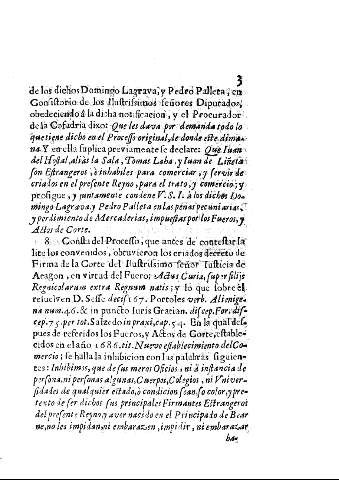 3
de los dichos Domingo Lagrava, y Pedro Palleta, en
Consistorio de los Ilustrissimos señores Diputados,
obedeciendo à la dicha notificacion, y el Procurador
de la Cofadria dixo: Que les dava por demanda todo lo
que tiene dicho en el Processo original, de donde este dima-
na. Y en ella suplica previamente se declare: Que Iuan
del Hostal, aliàs la Sala, Tomas Laba, y Iuan de Liñeta
son Estrangeros, è inhabiles para comerciar, y servir de
criados en el presente Reyno, para el trato, y comercio; y
prosigue, y juntamente condene V. S. I. à los dichos Do-
mingo Lagrava, y Pedro Palleta en las penas pecuniarias,
y perdimiento de Mercaderias, impuestas por los Fueros, y
Actos de Corte.
8 Consta del Processo, que antes de contestar la
lite los convenidos, obtuvieron los criados decreto de
Firma de la Corte del Ilustrissimo señor Iusticia de
Aragon, en virtud del Fuero; Actus Curiæ, super filijs
Regnicolarum extra Regnum natis; y lo que sobre èl
resuelven D. Sesse decis. 167. Portoles verb. Alienige-
na num. 46. & in puncto Iuris Gratian. discep. For. dis-
cep. 75. per tot. Salzedo in praxi, cap. 54. En la qual des-
pues de referidos los Fueros, y Actos de Corte, estable-
cidos en el año 1686. tit. Nuevo establecimiento del Co-
mercio; se halla la inhibicion con las palabras siguien-
tes: Inhibimos, que de sus meros Oficios, ni à instancia de
persona, ni personas algunas, Cuerpos, Colegios, ni Vniver-
sidades de qualquier estado, ò condicion sean, so color, y pre-
texto de ser dichos sus principales Firmantes Estrangeros
del presente Reyno, y aver nacido en el Principado de Bear
ne, no les impidan, ni embarazen, impidir, ni embarazar
ha-